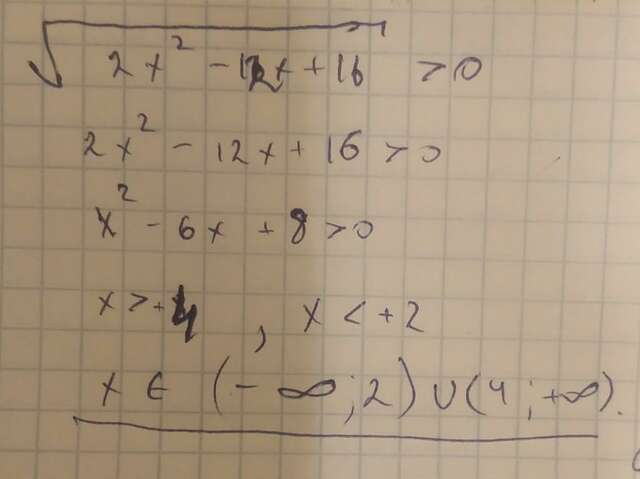 √(2x² - 12x + 16) > 0
2x² - 12x + 16 > 0
x² - 6x + 8 > 0
x > +4 , x < +2
x ∈ (-∞; 2) ∪ (4; +∞).